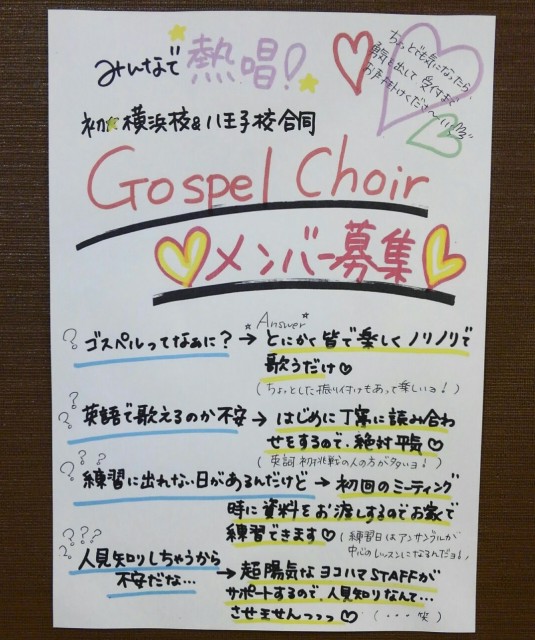 みんなで熱唱!
ちょっとでも気になったら、
勇気を出して受付まで
お声がけくださーい!!
初☆横浜校&八王子校合同
Gospel Choir
メンバー募集
*Answer*
? ゴスペルってなぁに? → とにかく皆で楽しくノリノリで
歌うだけ♡
(ちょっとした振り付けもあって楽しいョ!)
??? 英語で歌えるのか不安 → はじめに丁寧に読み合わ
せをするので、絶対平気♡
(英詞初挑戦の人の方が多いョ!)
??? 練習に出れない日があるんだけど → 初回のミーティング
時に資料をお渡しするのでお家で
練習できます♡
(練習日はアンサンブルが
中心のレッスンになるんだョ!)
???? 人見知りしちゃうから
不安だな… → 超陽気なヨコハマSTAFFが
サポートするので、人見知りなんて…
させませんっっっ♡ (・・・笑)